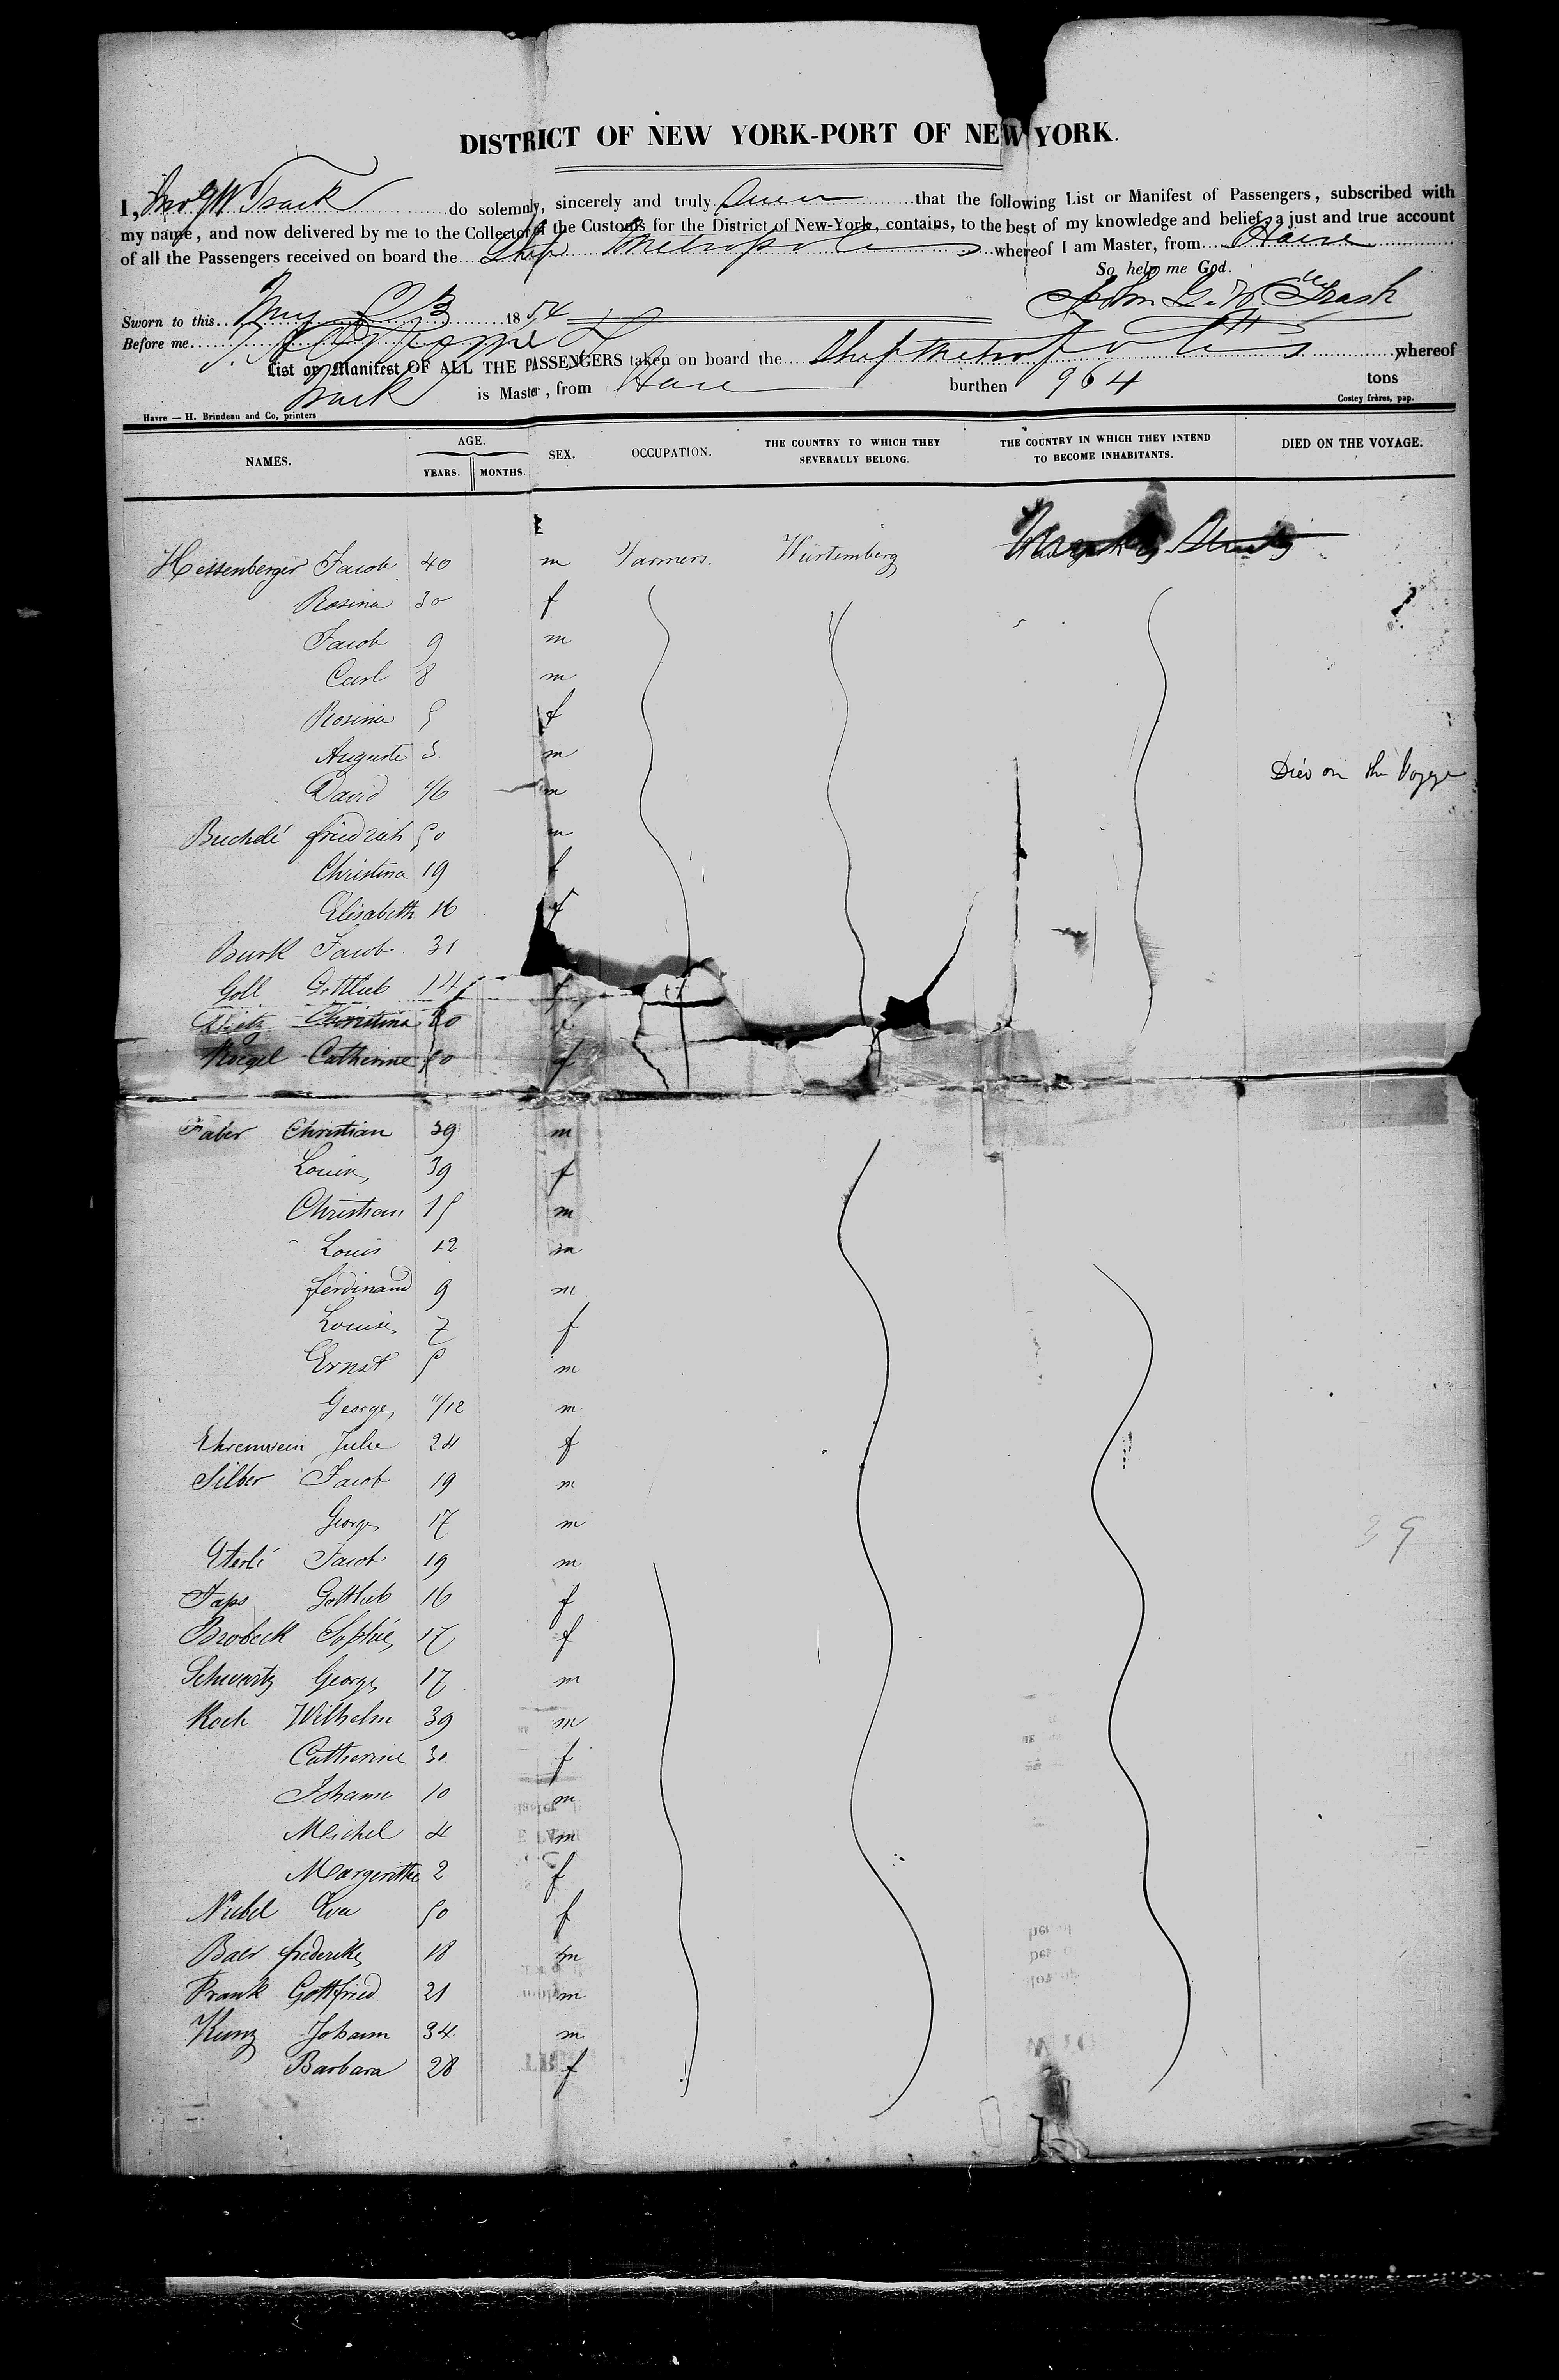 DISTRICT OF NEW YORK-PORT OF NEW YORK.
I, Jno G W Trask do solemnly, sincerely and truly Swear that the following List or Manifest of Passengers, subscribed with
my name, and now delivered by me to the Collector of the Customs for the District of New-York, contains, to the best of my knowledge and belief, a just and true account
of all the Passengers received on board the Ship Metropolis whereof I am Master, from Havre
So help me God.
John G. W. Trask
Sworn to this 1854
Before me
List or Manifest OF ALL THE PASSENGERS taken on board the Ship Metropolis whereof
Trask is Master, from Havre burthen 964 tons
Havre — H. Brindeau and Co, printers Costey frères, pap.
NAMES. AGE. YEARS. MONTHS. SEX. OCCUPATION. THE COUNTRY TO WHICH THEY SEVERALLY BELONG. THE COUNTRY IN WHICH THEY INTEND TO BECOME INHABITANTS. DIED ON THE VOYAGE.
Hessenberger Jacob 40 m Farmers. Würtemberg
Rosina 30 f
Jacob 9 m
Carl 8 m
Rosina 5 f
Auguste 3 m
David 1/6 m Died on the Voyge
Buchelé friedrich 50 m
Christina 19 f
Elisabeth 16 f
Burk Jacob 31
Goll Gottlieb 14 f
Christina f
Koegel Catherine 50 f
Faber Christian 39 m
Louise 39 f
Christian 15 m
Louis 12 m
ferdinand 9 m
Louise 7 f
Ernst 5 m
George 11/12 m
Ehrenwein Julie 24 f
Silber Jacob 19 m
George 17 m
Jacob 19 m
Faps Gottlieb 16 f
Brobeck Sophie 17 f
Schwartz George 17 m
Koch Wilhelm 39 m
Catherine 30 f
Johann 10 m
Michel 4 m
Margerithe 2 f
Nubel Eva 50 f
Baer frederike 18 m
Frank Gottfried 21 m
Kunz Johann 34 m
Barbara 28 f